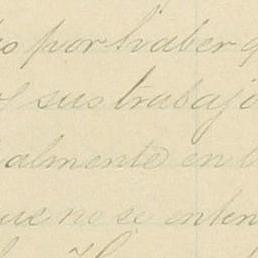 por haber
sus trabajo
almente en
que no se enten